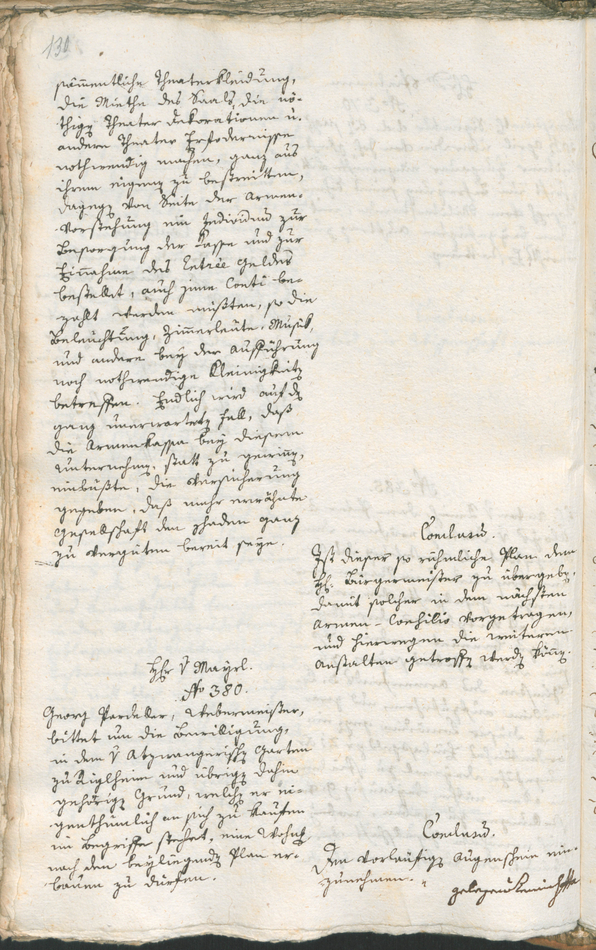 130.
sämmentliche Theaterkleidung,
die Miethe des Saals, die nö-
thigen Theater Dekorationen u.
andere Theater Erfodernisse
nothwendig machen, ganz aus
ihrem eigenen zu bestreitten,
dagegen von Seite der Armen-
Vorstehung ein Individuum zur
Besorgung der Kasse und zur
Einnahme des Entrée Geldes
bestellet, auch jene Conti be-
zahlt werden müßten, so die
Beleuchtung, Zimmerleute, Musick,
und andere bey der Aufführung
noch nothwendige Kleinigkeiten
betreffen. Endlich wird auf den
ganz unerwarteten Fall, daß
die Armenkassa bey diesem
Unternehmen, statt zu gewinnen,
einbüßte, die Versicherung
gegeben, daß mehr erwähnte
Gesellschaft den Schaden ganz
zu vergüten bereit seye.
Conclusum.
Ist dieser so rühmliche Plan dem
H. Bürgermeister zu übergeben,
damit solcher in dem nächsten
Armen-Consilio vorgetragen,
und hierwegen die weiteren
Anstalten getroffen werden können.
Hr v Mayrl.
No 380.
Georg Pardeller, Webermeister,
bittet um die Bewilligung,
in dem v Atzwangerischen Garten
zu Riglheim und übrigen dahin
gehörigen Grund, welchen er ei-
genthümlich an sich zu kaufen
im Begriffe stehet, eine Wohnung
nach dem beyliegenden Plan er-
bauen zu dürfen.
Conclusum.
Den vorläufigen Augenschein ein-
zunehmen.